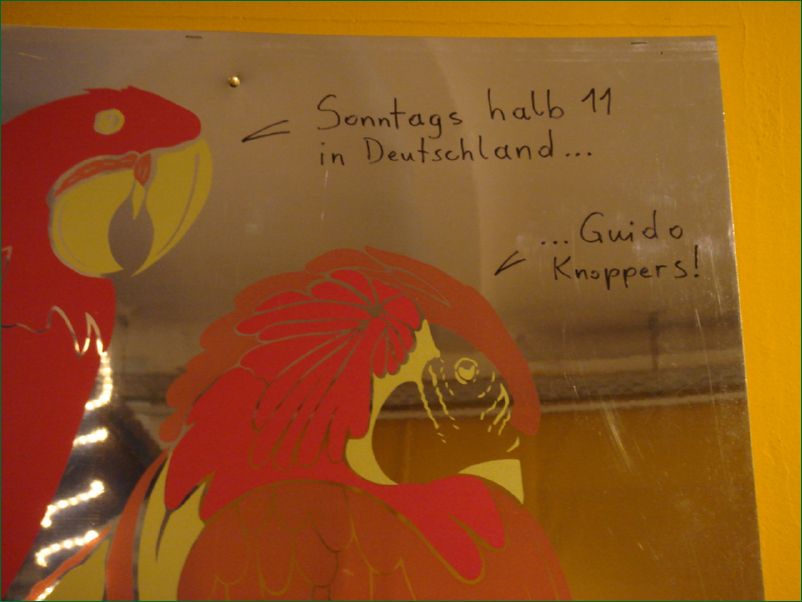 Sonntags halb 11
in Deutschland...
...Guido
Knoppers!